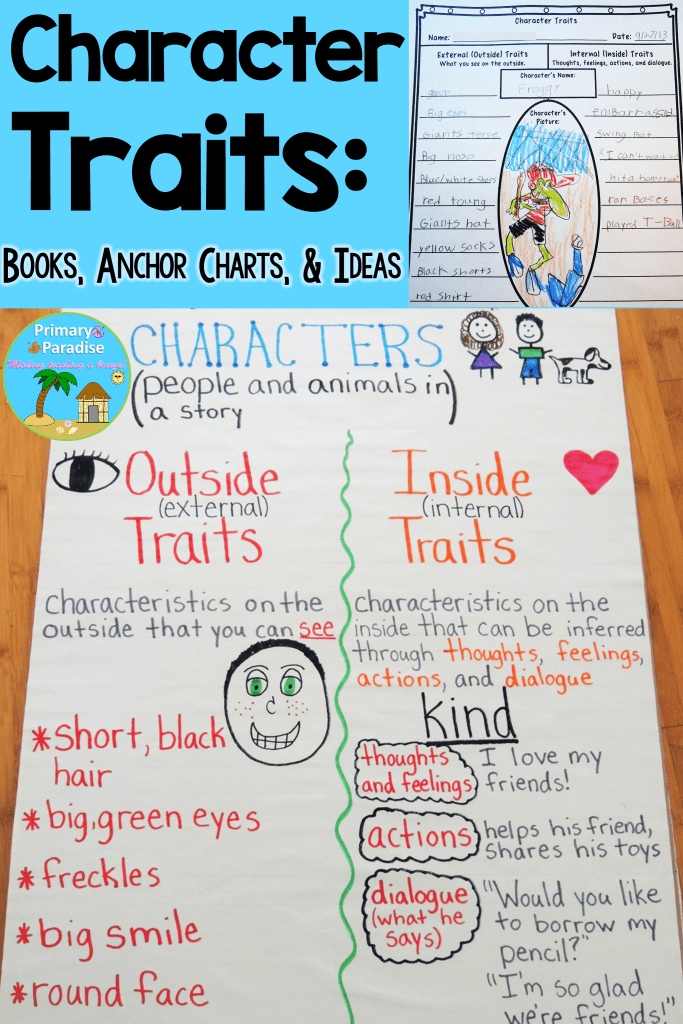 Character
Traits:
BOOKS, ANCHOR CHARTS, & IDEAS
Character Traits
Name: Date: 9/27/13
External (Outside) Traits
What you see on the outside.
Internal (Inside) Traits
Thoughts, feelings, actions, and dialogue.
Character's Name:
Froggy
Character's
Picture:
Big eyes
Giants terse
Big noso
Blue/white shoes
red toung
Giants hat
yellow socks
Black shorts
red shirt
happy
embarrassed
swing Bat
"I can't wait to
hit a homerun"
ran Bases
played T-Ball
Primary
Paradise
Making teaching a breeze!
CHARACTERS
(people and animals in
a story)
Outside
(external)
Traits
Characteristics on the
outside that you can see
*short, black
hair
*big, green eyes
*freckles
*big smile
*round face
Inside
(internal)
Traits
Characteristics on the
inside that can be inferred
through thoughts, feelings,
actions, and dialogue
kind
thoughts
and feelings
I love my
friends!
actions
helps his friend,
shares his toys
dialogue
(what he
says)
"Would you like
to borrow my
pencil?"
"I'm so glad
we're friends!"